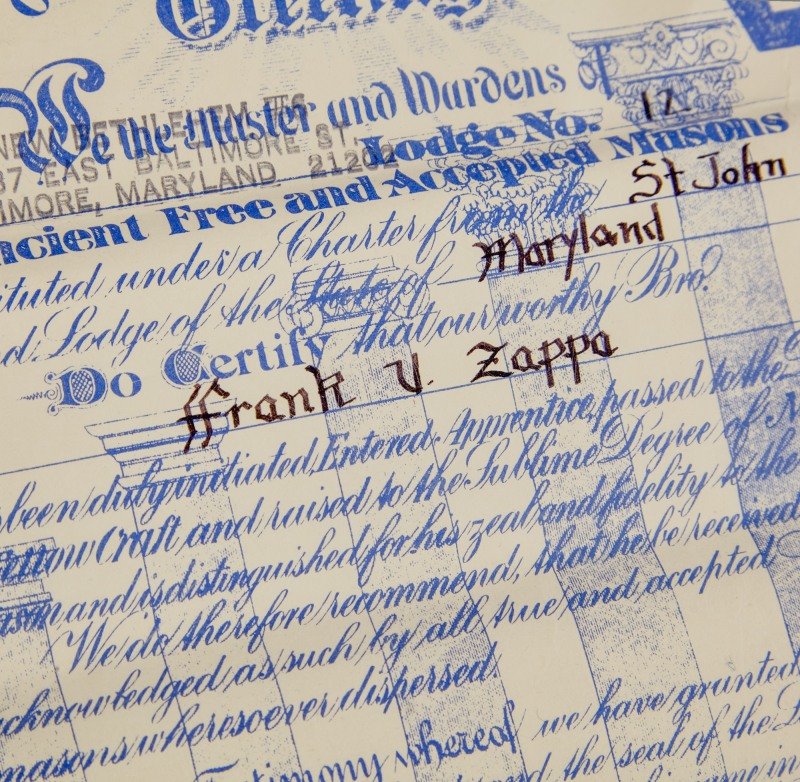 Greeting
We the Master and Wardens of
NEW BETHLEHEM #6
37 EAST BALTIMORE ST.
IMORE, MARYLAND 21202
Lodge No. 17
ncient Free and Accepted Masons
ituted under a Charter from the St John
d Lodge of the State of Maryland
Do Certify that our worthy Bro.
Frank V. Zappa
been duly initiated, Entered Apprentice, passed to the
ellow Craft and raised to the Sublime Degree of M
ason and is distinguished for his zeal and fidelity to the
We do therefore recommend, that he be received
acknowledged as such by all true and accepted
masons wheresoever dispersed.
Testimony whereof we have granted
and the seal of the L